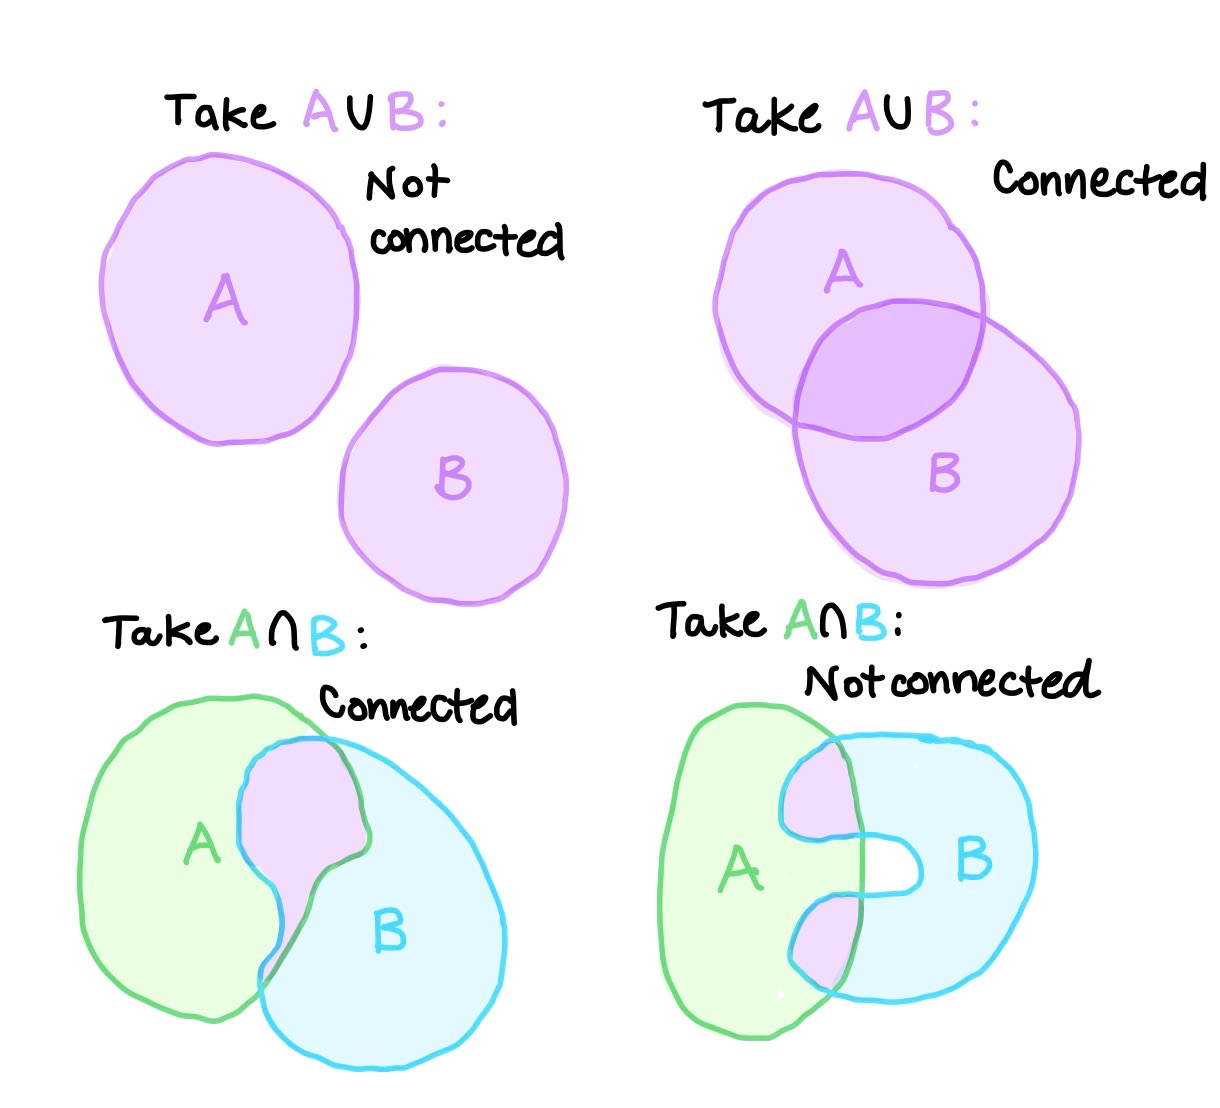 Take A∪B:
Not
connected
A
B
Take A∪B:
Connected
A
B
Take A∩B:
Connected
A
B
Take A∩B:
Not connected
A
B